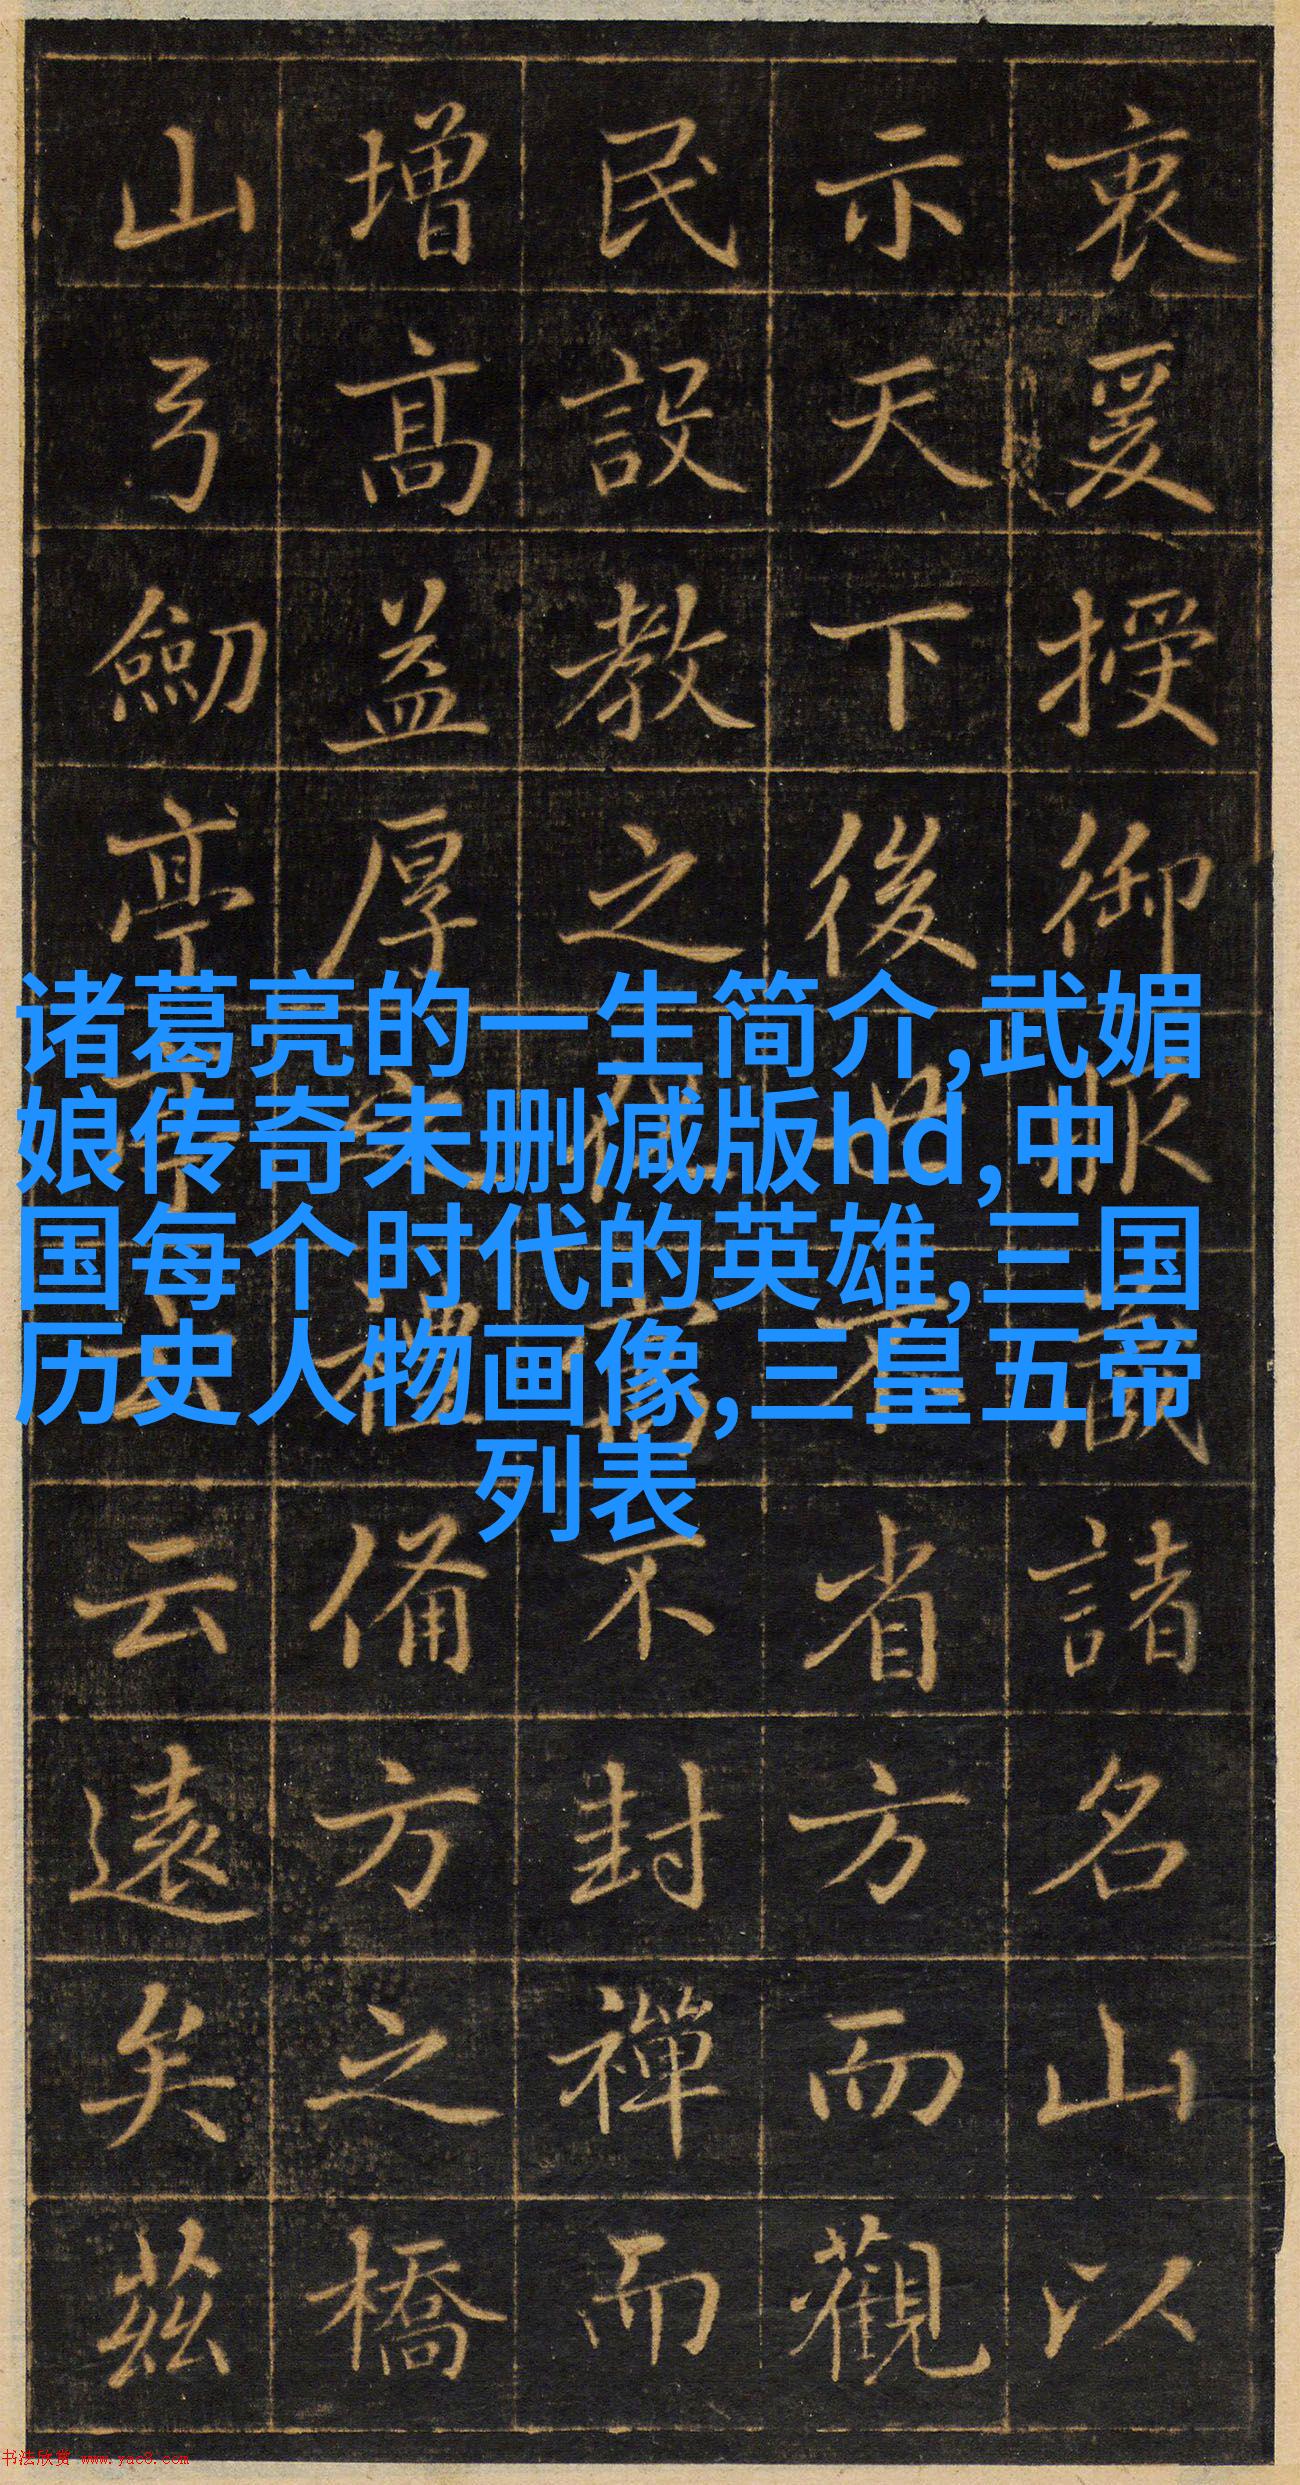 衷爰授御服藏諸名山以
示天下後省方而觀
民設教之不封禪而
增高益厚之禮備方之橋
山弓劒亭云遠矣茲
诸葛亮的一生简介,武媚
娘传奇未删减版hd,中
国每个时代的英雄,三国
历史人物画像,三皇五帝
列表
书法欣赏 www.yac8.com